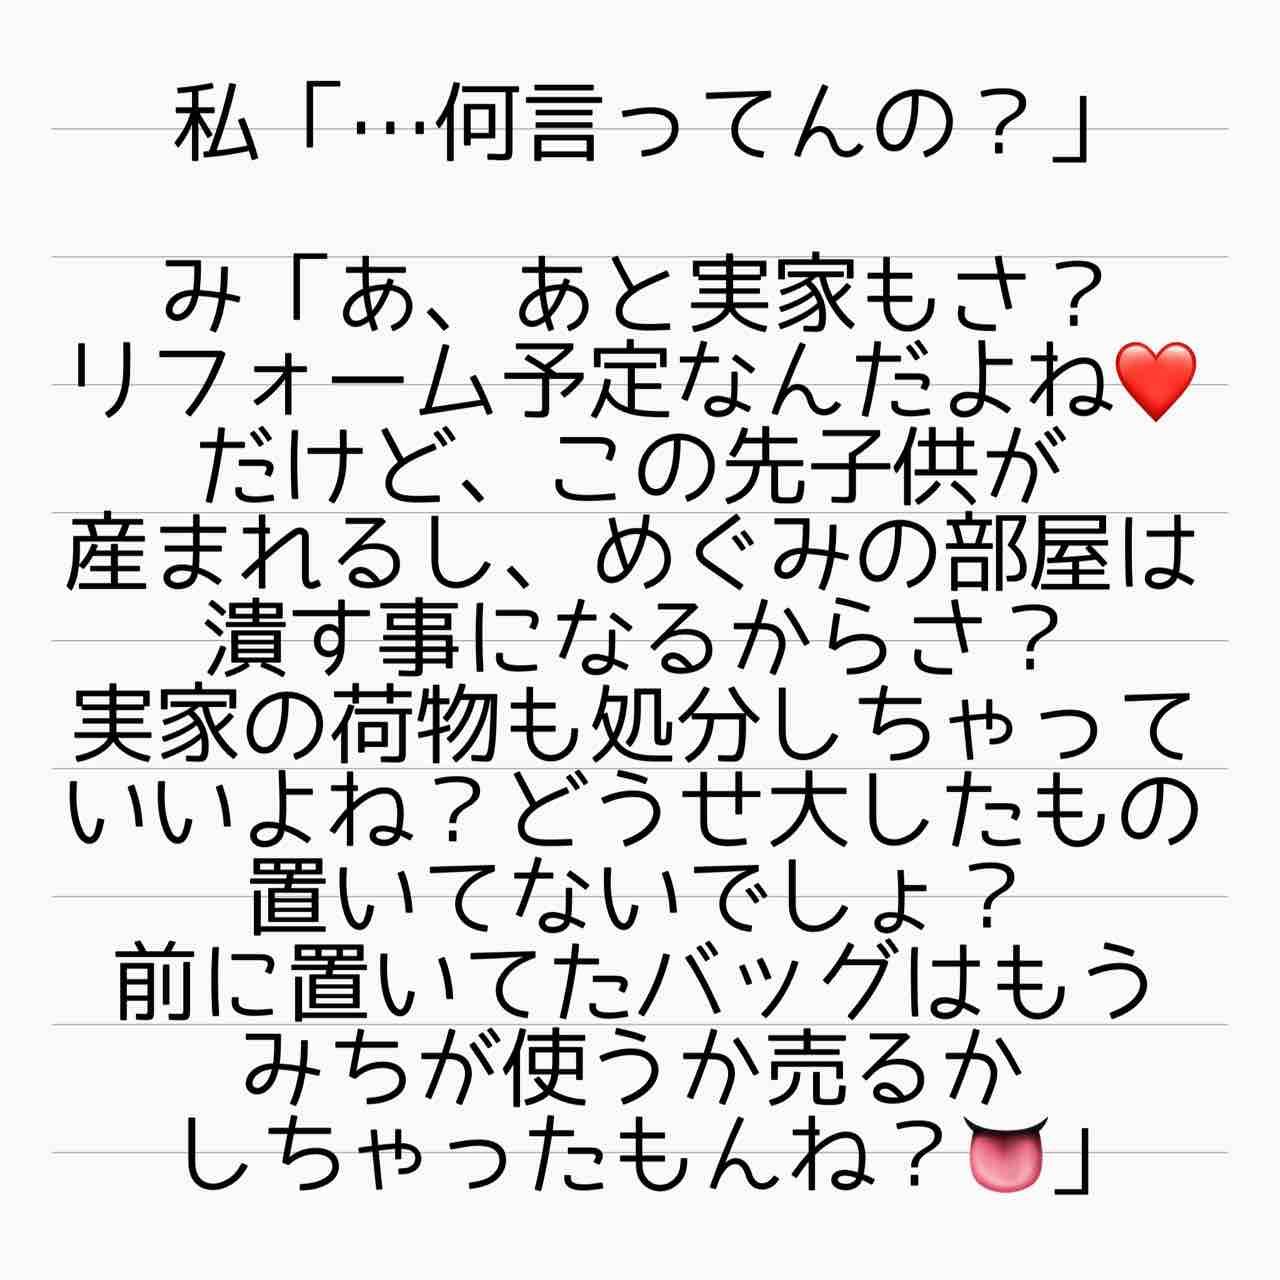 私「…何言ってんの？」
み「あ、あと実家もさ？
リフォーム予定なんだよね❤️
だけど、この先子供が
産まれるし、めぐみの部屋は
潰す事になるからさ？
実家の荷物も処分しちゃって
いいよね？どうせ大したもの
置いてないでしょ？
前に置いてたバッグはもう
みちが使うか売るか
しちゃったもんね？👅」